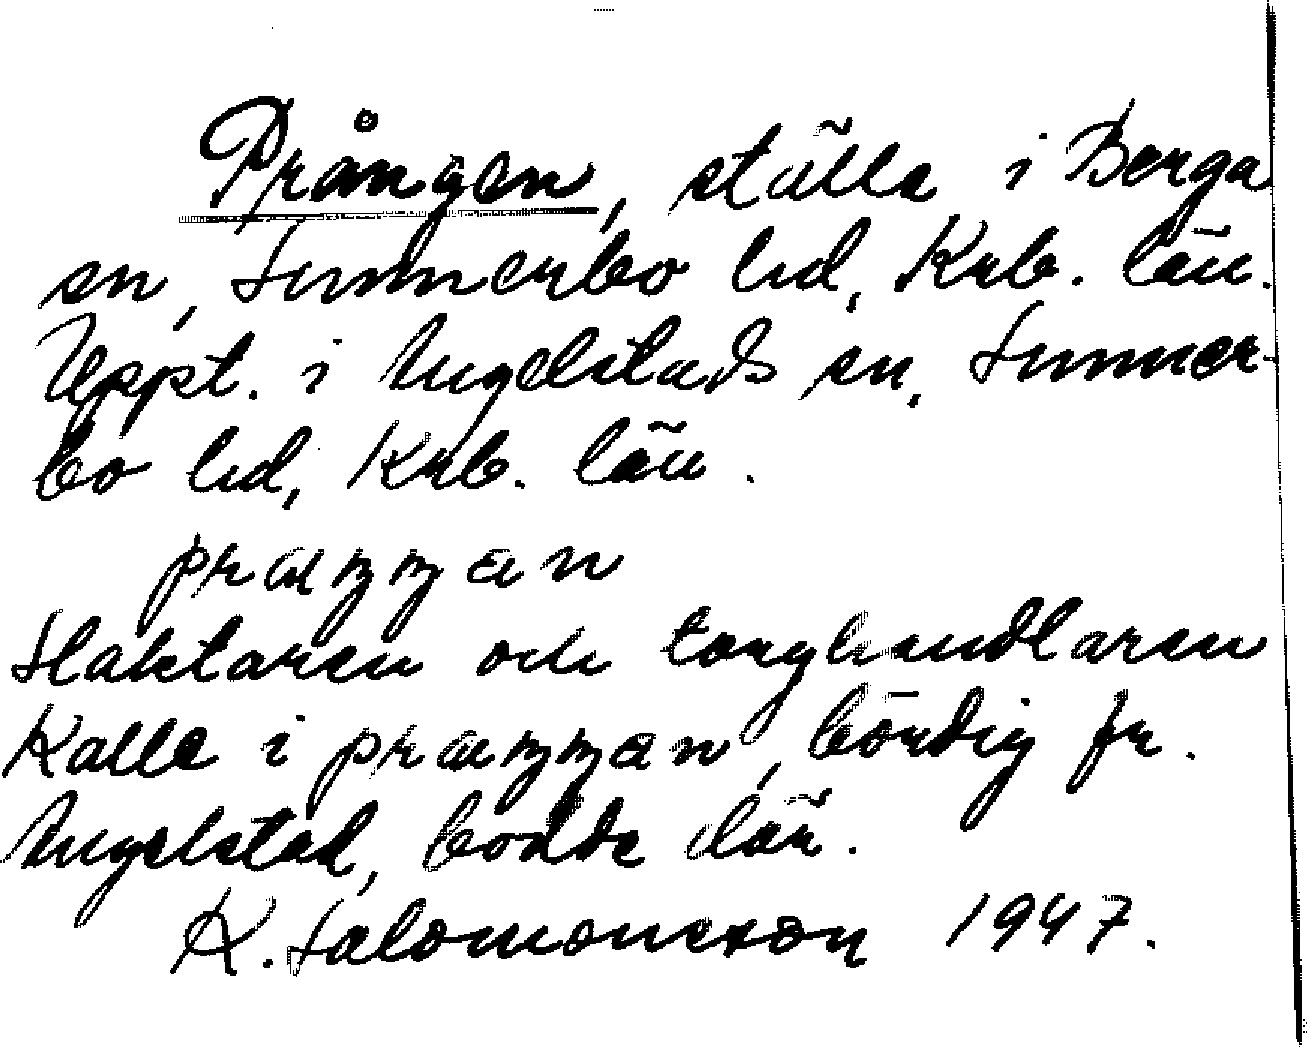 Prången, ställe i Berga
sn, Sunnerbo hd, Krb. län.
Uppt. i Angelstads sn, Sunner-
bo hd, Krb. län.
Slaktaren och torghandlaren
Kalle i bördig fr.
Angelstad, bodde där.
K. Salomonsson 1947.